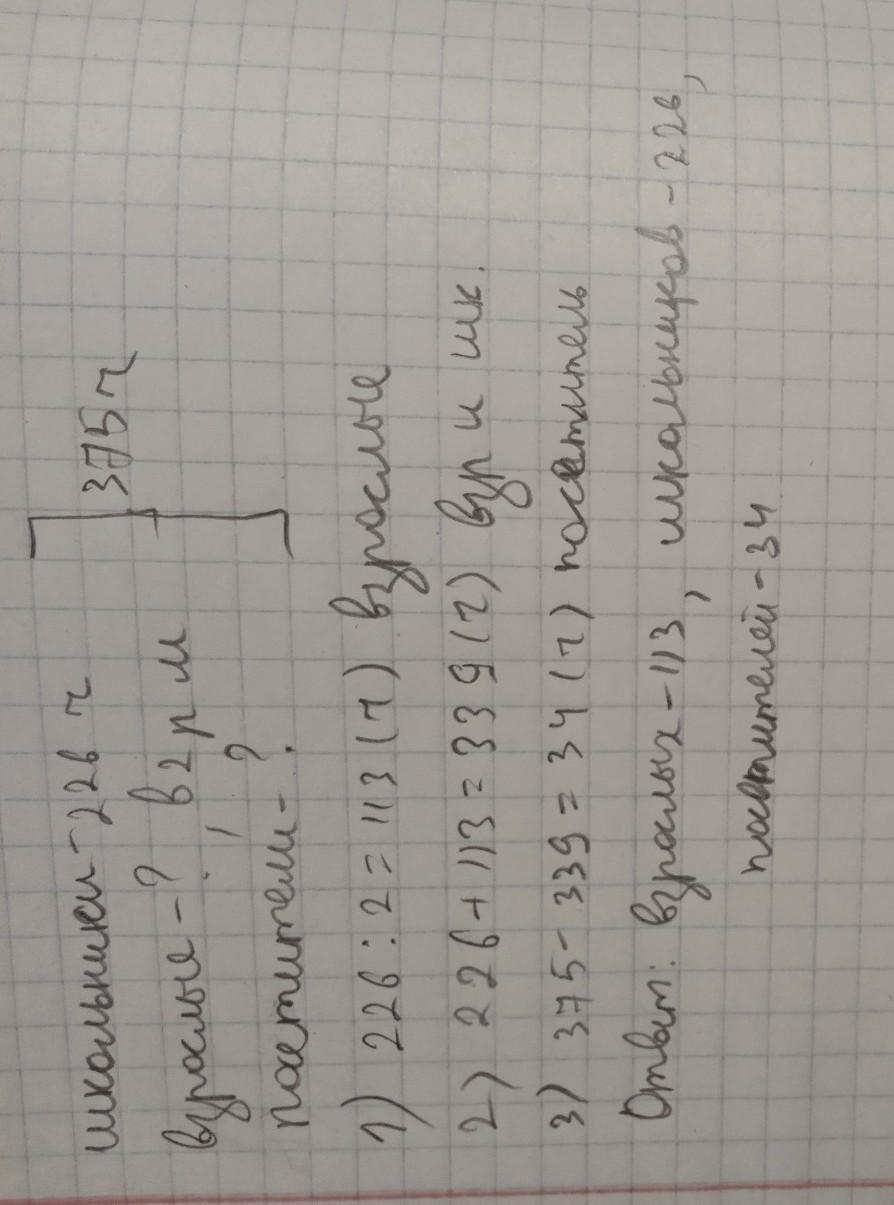 школьники - 226 ч
взрослые - ? в 2 р м
375 ч
посетители - ?
1) 226 : 2 = 113 (ч) взрослые
2) 226 + 113 = 339 (ч) взр и шк.
3) 375 - 339 = 34 (ч) посетитель
Ответ: взрослых - 113, школьников - 226,
посетителей - 34